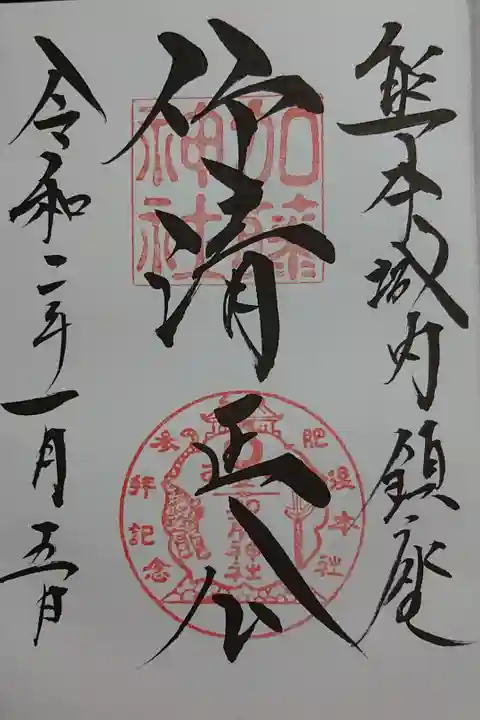 熊本城内鎮座
仰清正公
令和二年一月五日
加藤神社
肥後本社
参拝記念